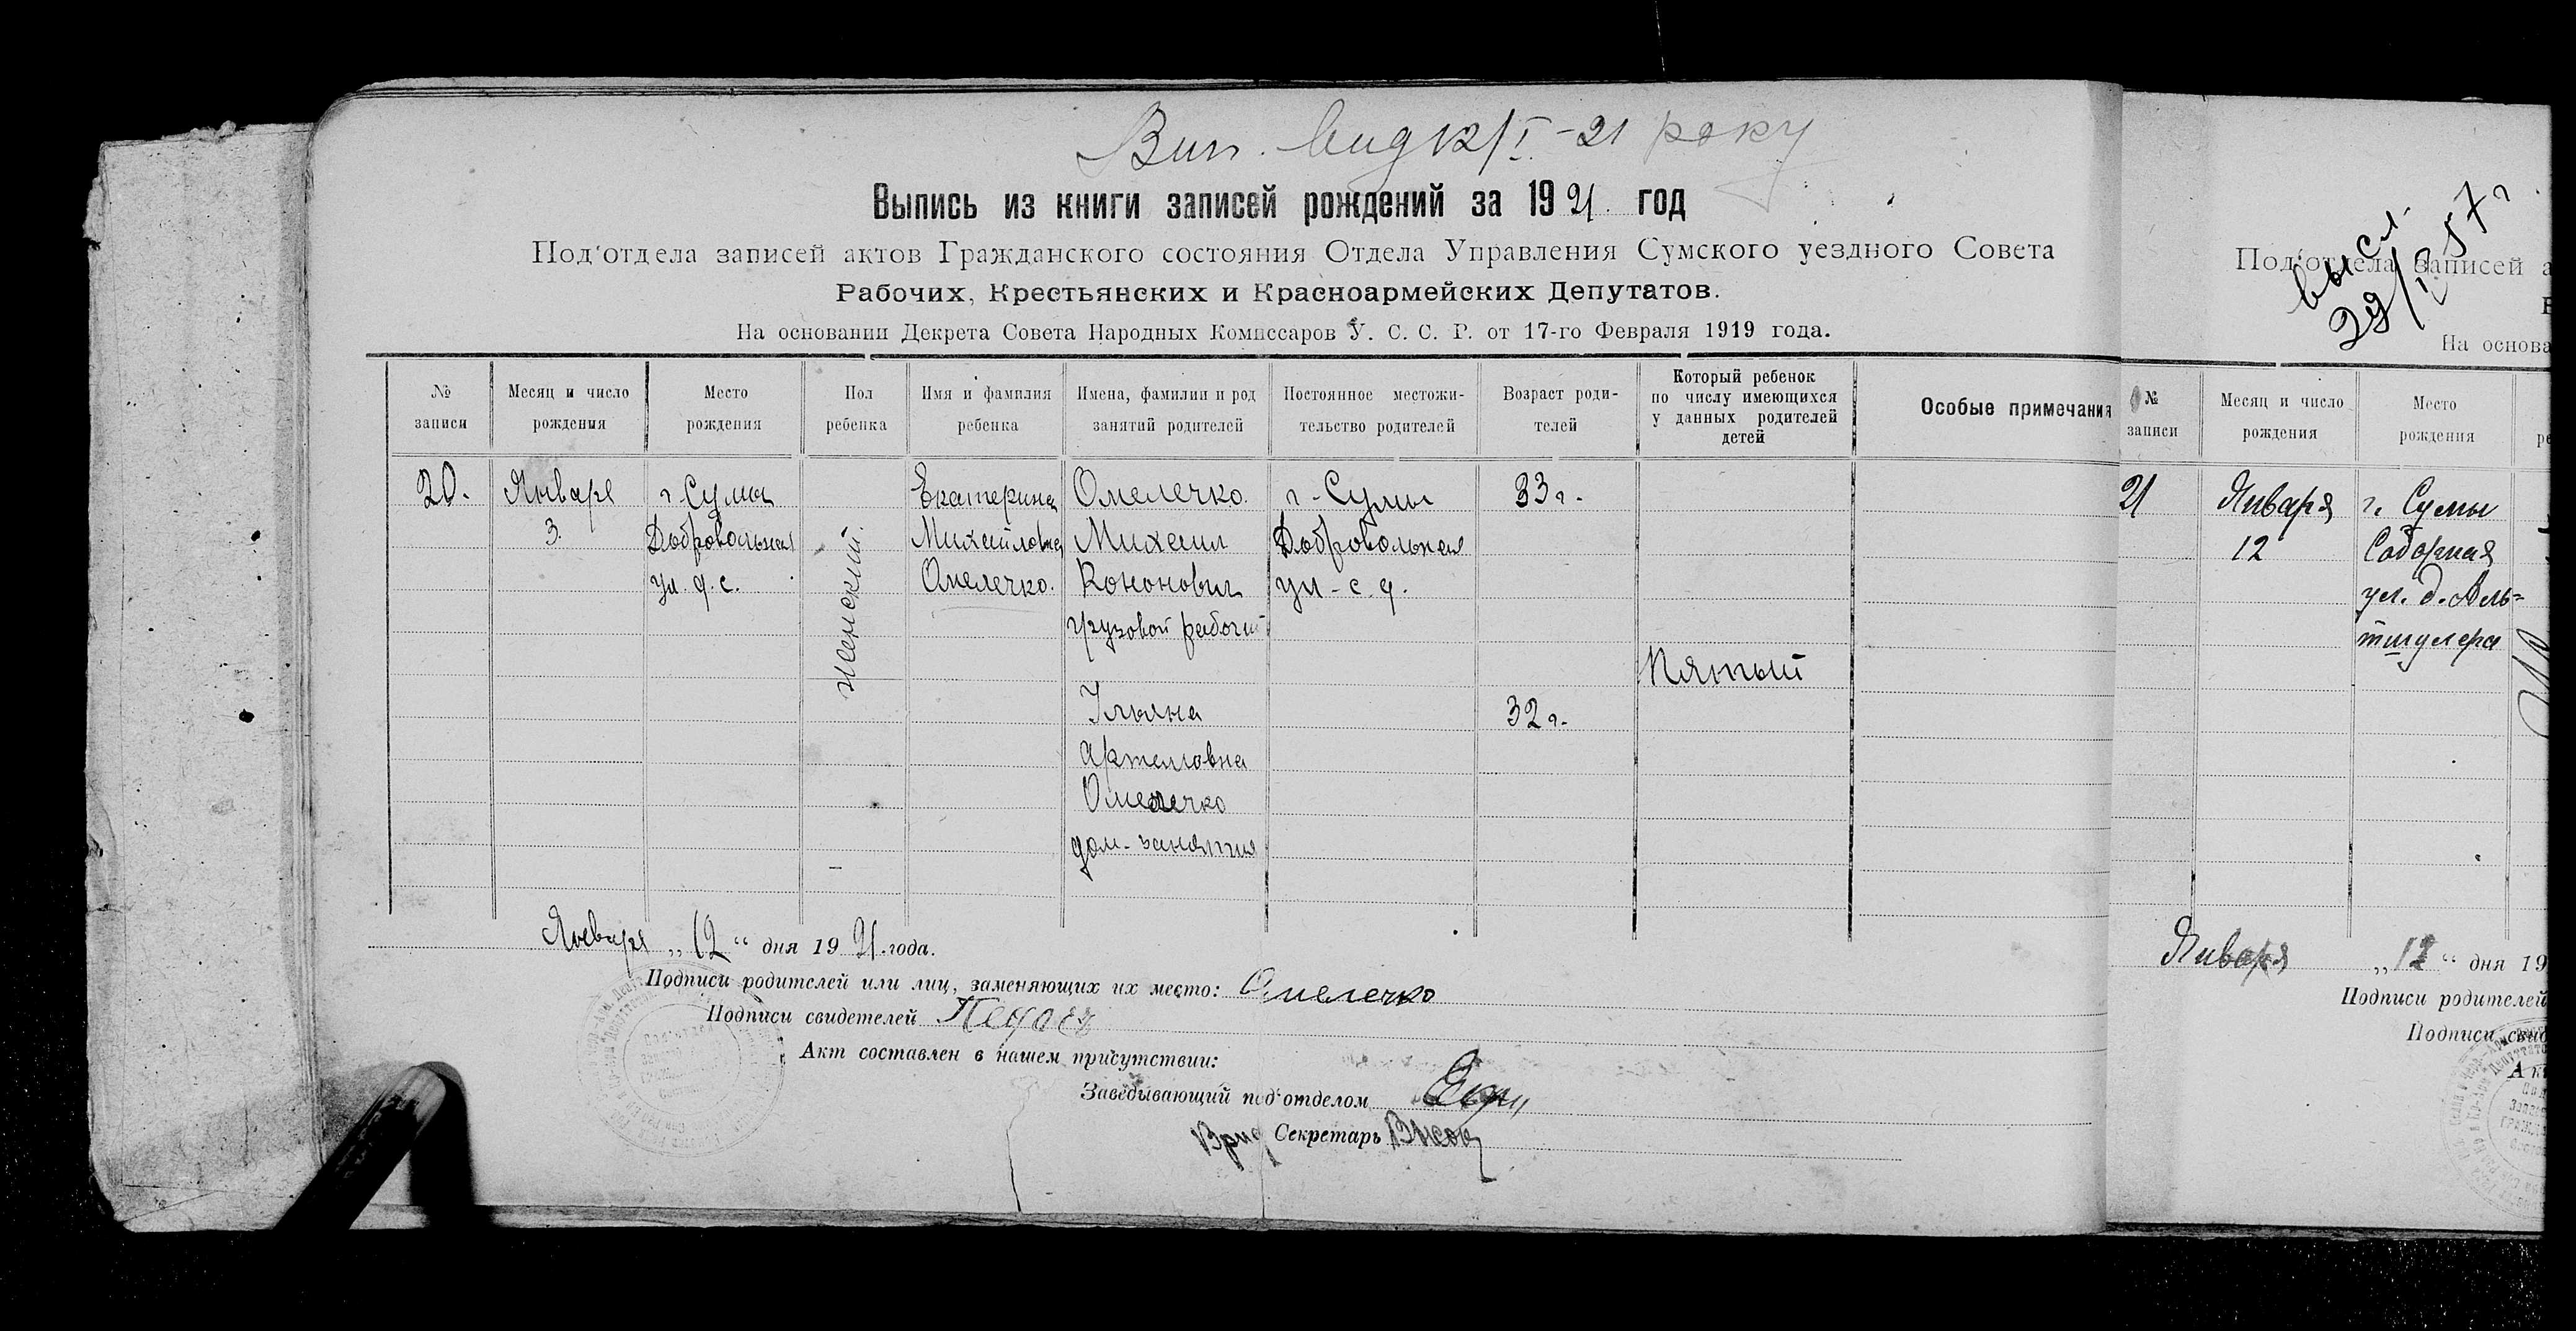 Вип. вид 12/I-21 року
Выпись из книги записей рождений за 1921. год
Под‘отдела записей актов Гражданского состояния Отдела Управления Сумского уездного Совета
Рабочих, Крестьянских и Красноармейских Депутатов.
На основании Декрета Совета Народных Комиссаров У. С. С. Р. от 17-го Февраля 1919 года.
№ записи
Месяц и число рождения
Место рождения
Пол ребенка
Имя и фамилия ребенка
Имена, фамилии и род занятий родителей
Постоянное местожительство родителей
Возраст родителей
Который ребенок по числу имеющихся у данных родителей детей
Особые примечания
20.
Января
3.
г. Сумы
Добровольная
ул. д. с.
женский.
Екатерина
Михайловна
Омелечко.
Омелечко.
Михаил
Кононович
грузовой рабочий
Ульяна
Артемовна
Омелечко
дом. занятия
г. Сумы
Добровольная
ул. с. д.
33 г.
32 г.
Пятый
Января „12“ дня 1921. года.
Подписи родителей или лиц, заменяющих их место: Омелечко
Подписи свидетелей
Акт составлен в нашем присутствии:
Заведывающий под‘отделом
Врид Секретарь
высл.
29/ 57 г
Под‘отдела записей а
На основа
№ записи
Месяц и число рождения
Место рождения
21
Января
12
г. Сумы
Соборная
ул. д. Аль=
тшулера
Января „12“ дня 19
Подписи родителей
Подписи свид
Ак